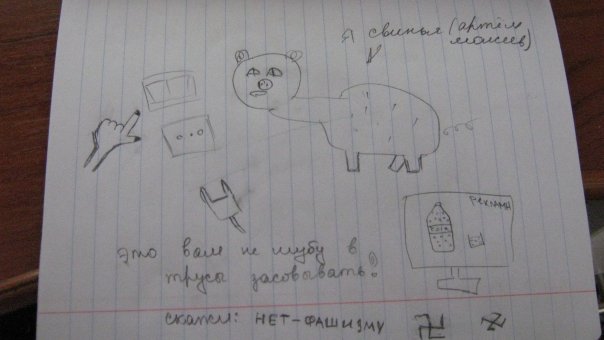 Я свинья (артём
моисев)
РЕКЛАМА
Это вам не шубу в
трусы засовывать!
скажи: НЕТ-ФАШИЗМУ